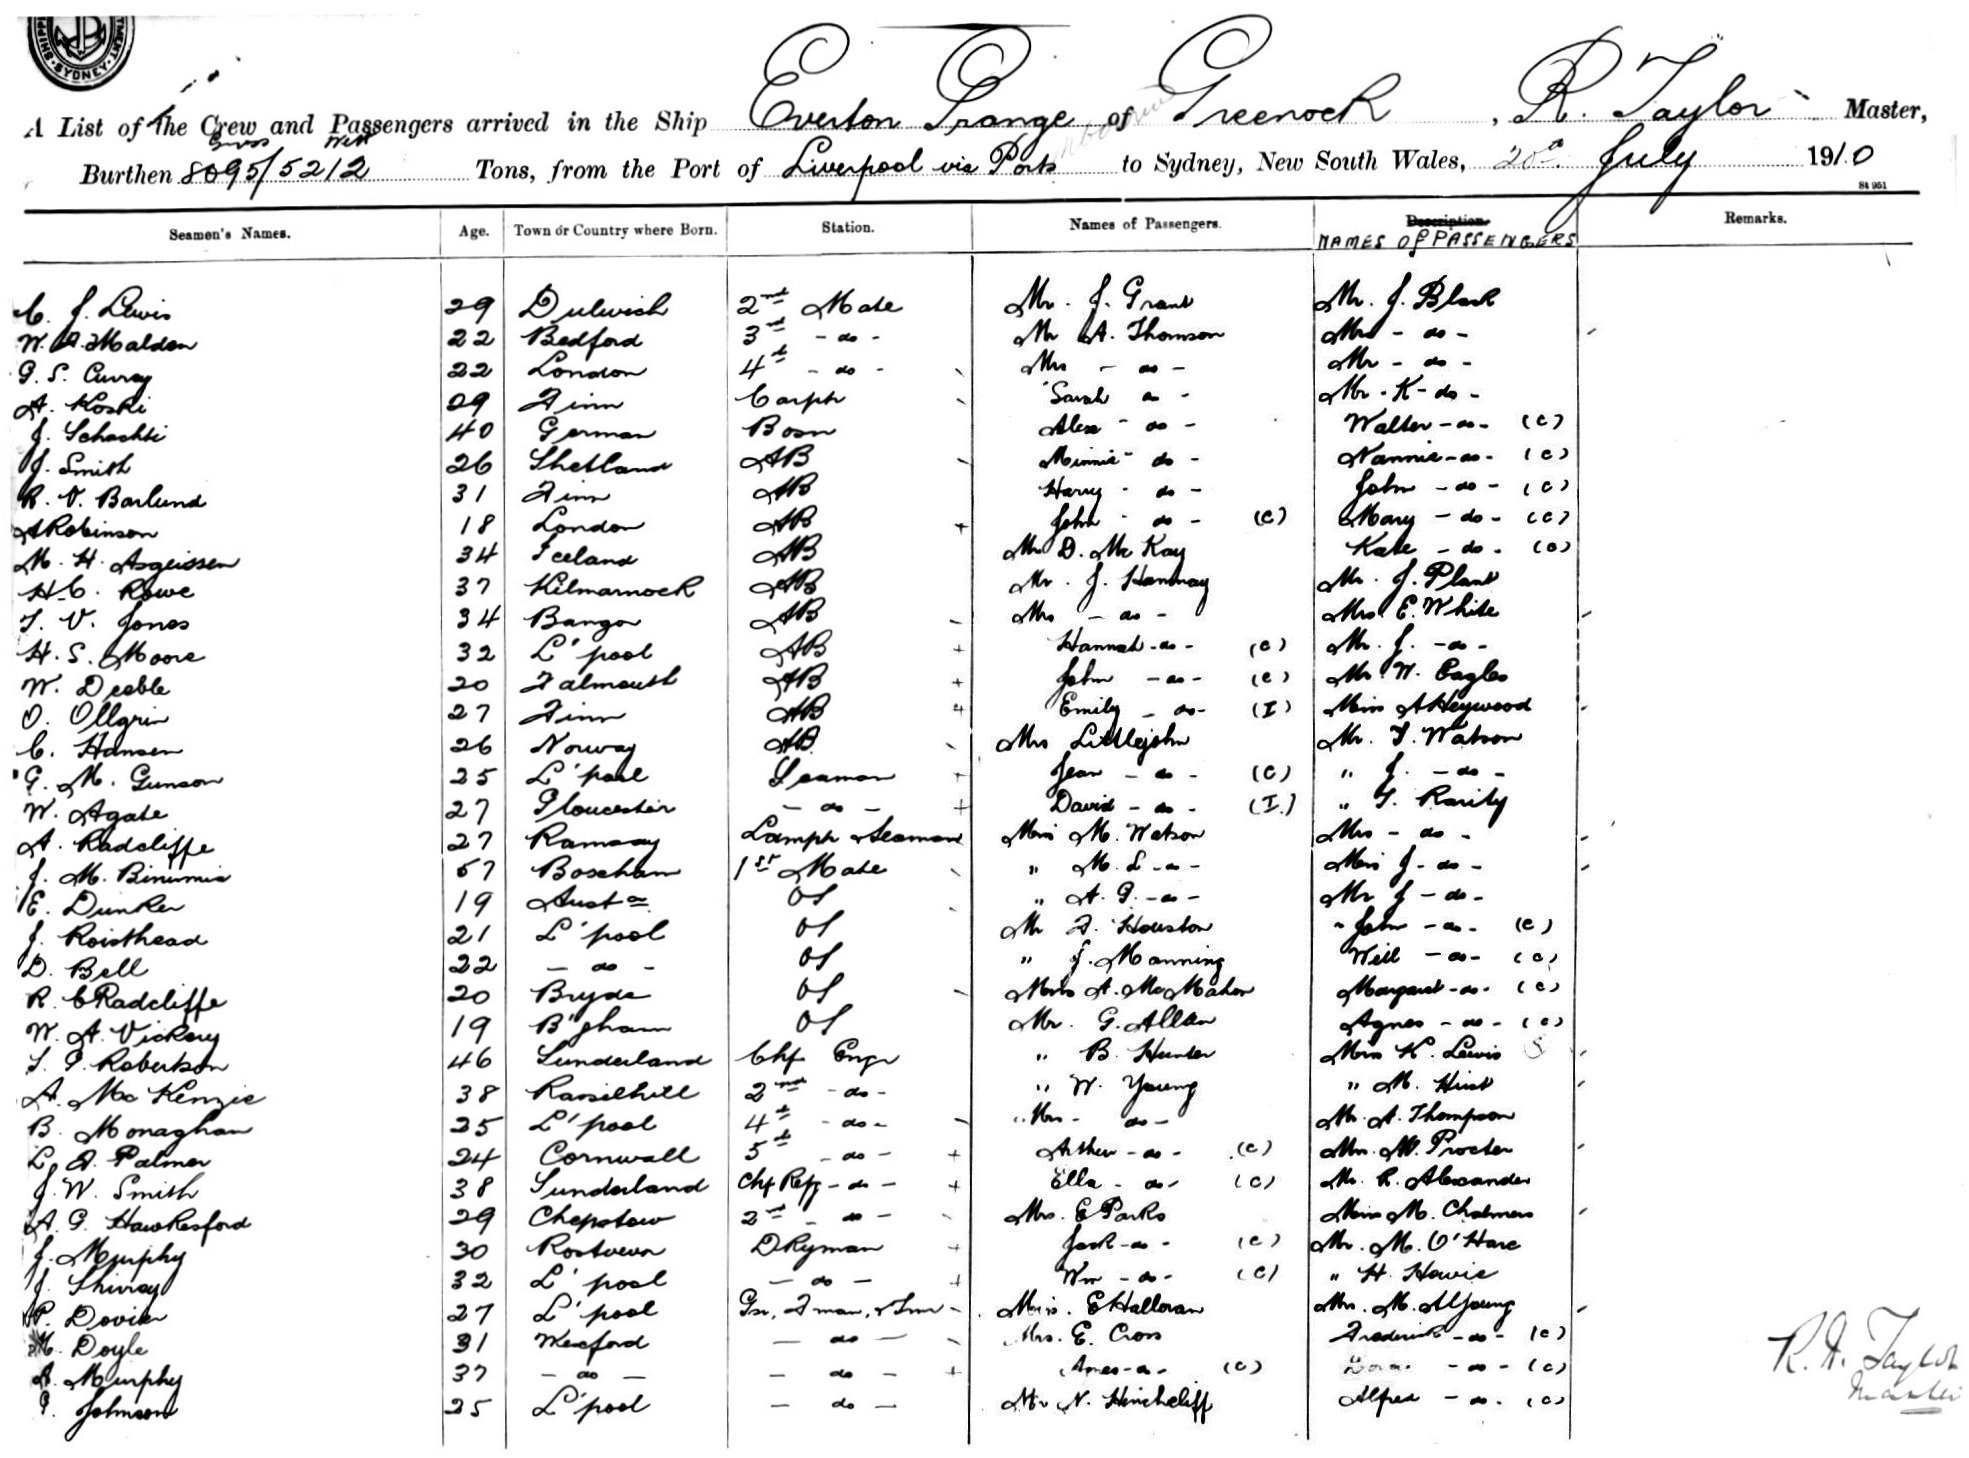 SHIPP TMENT SYDNEY
A List of the Crew and Passengers arrived in the Ship Everton Grange of Greenock , R. Taylor Master,
Gross Nett
Burthen 8095/5212 Tons, from the Port of Liverpool via Ports to Sydney, New South Wales, 20th July 1910
St 951
Seamen's Names. Age. Town or Country where Born. Station. Names of Passengers. Description. Remarks.
NAMES OF PASSENGERS
C. J. Lewis 29 Dulwich 2nd Mate Mr. J. Grant Mr. J. Black
W. A. Malden 22 Bedford 3rd - do - Mr A. Thomson Mrs - do -
G. S. Curray 22 London 4th - do - Mrs - do - Mr - do -
A. Koski 29 Finn Carptr Sarah do - Mr. K - do -
J. Schachti 40 German Bosn Alex - do - Walter - do - (C)
J. Smith 26 Shetland AB Minnie - do - Nannie - do - (C)
R. V. Barlund 31 Finn AB Harry - do - John - do - (C)
A Robinson 18 London AB John - do - (C) Mary - do - (C)
M. H. Asgeissen 34 Iceland AB Mr D. Mc Kay Kate - do - (C)
H. C. Rowe 37 Kilmarnock AB Mr. J. Hannay Mr. J. Plant
T. V. Jones 34 Bangor AB Mrs - do - Mrs E. White
H. S. Moore 32 L'pool AB Hannah - do - (C) Mr. J. - do -
W. Deeble 20 Falmouth AB John - do - (C) Mr W. Eagles
O. Ollgrin 27 Finn AB Emily - do - (I) Miss A Heywood
C. Hansen 26 Norway AB Mrs Littlejohn Mr. T. Watson
G. M. Gunson 25 L'pool Seaman Jean - do - (C) " J. - do -
W. Agate 27 Gloucester - do - David - do - (I.) " T. Rarity
A. Radcliffe 27 Ramsay Lamptr & Seaman Miss M. Watson Mrs - do -
J. M. 57 Boscham 1st Mate " M. L - do - Miss J - do -
E. Dunker 19 Aust a OS " A. G. - do - Mr J - do -
J. Roisthead 21 L'pool OS Mr F. Houston " John - do - (C)
D. Bell 22 - do - OS " J. Manning Will - do - (C)
R. C Radcliffe 20 Bryde OS Miss A. Mc Mahon Margaret - do - (C)
W. A. Vickery 19 B'gham OS Mr. G. Allan Agnes - do - (C)
T. G. Robertson 46 Sunderland Chf Engr " B. Hunter Miss K. Lewis
A. Mc Kenzie 38 Rainhill 2nd - do - " W. Young " M. Hirst
B. Monaghan 25 L'pool 4th - do - " Mrs - do - Mr. A. Thompson
L. A. Palmer 24 Cornwall 5th - do - Arthur - do - (C) Mrs. M. Procter
J. W. Smith 38 Sunderland Chf Refg - do - Ella - do - (C) Mr. R. Alexander
A. G. Hawkesford 29 Chepstow 2nd - do - Mrs. E Parks Miss M. Chalmers
J. Murphy 30 Rostrevor DKyman Jack - do - (C) Mr. M. O'Hare
J. Shivray 32 L'pool - do - Wm - do - (C) " H. Howie
P. Dovier 27 L'pool Gr, Fman, & Tmr Miss. E Halloran Mrs. M. A Young
M. Doyle 31 Wexford - do - Mrs. E. Cross Frederick - do - (C)
A. Murphy 37 - do - - do - - do - (C) - do - (C)
Johnson 25 L'pool - do - Mr N. Hinchcliff Alfred - do - (C)
R. A. Taylor
Master